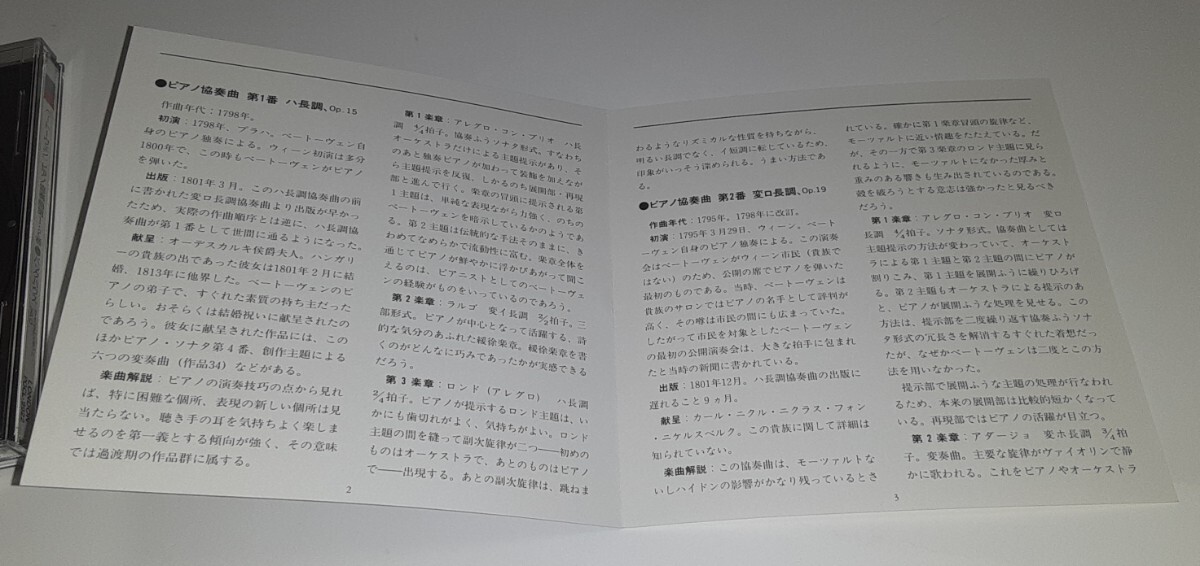 ●ピアノ協奏曲 第1番 ハ長調、Op.15
作曲年代：1798年。
初演：1798年、プラハ。ベートーヴェン自
身のピアノ独奏による。ウィーン初演は多分
1800年で、この時もベートーヴェンがピアノ
を弾いた。
出版：1801年3月。このハ長調協奏曲の前
に書かれた変ロ長調協奏曲より出版が早かっ
たため、実際の作曲順序とは逆に、ハ長調協
奏曲が第1番として世間に通るようになった。
献呈：オーデスカルキ侯爵夫人。ハンガリ
ーの貴族の出であった彼女は1801年2月に結
婚、1813年に他界した。ベートーヴェンのピ
アノの弟子で、すぐれた素質の持ち主だった
らしい。おそらくは結婚祝いに献呈されたの
であろう。彼女に献呈された作品には、この
ほかピアノ・ソナタ第4番、創作主題による
六つの変奏曲（作品34）などがある。
楽曲解説：ピアノの演奏技巧の点から見れ
ば、特に困難な個所、表現の新しい個所は見
当たらない。聴き手の耳を気持ちよく楽しま
せるのを第一義とする傾向が強く、その意味
では過渡期の作品群に属する。
第1楽章：アレグロ・コン・ブリオ ハ長
調 4/4拍子。協奏ふうソナタ形式、すなわち
オーケストラだけによる主題提示があり、そ
のあと独奏ピアノが加わって装飾を加えなが
ら主題提示を反復、しかるのち展開部・再現
部と進んで行く。楽章の冒頭に提示される第
1主題は、単純な表現ながら力強く、のちの
ベートーヴェンを暗示しているかのようであ
る。第2主題は伝統的な手法そのままに、き
わめてなめらかで流動性に富む。楽章全体を
通じてピアノが鮮やかに浮かびあがって聞こ
えるのは、ピアニストとしてのベートーヴェ
ンの経験がものをいっているのであろう。
第2楽章：ラルゴ 変イ長調 2/2拍子。三
部形式。ピアノが中心となって活躍する、詩
的な気分のあふれた緩徐楽章。緩徐楽章を書
くのがどんなに巧みであったかが実感できる
だろう。
第3楽章：ロンド（アレグロ） ハ長調
2/4拍子。ピアノが提示するロンド主題は、い
かにも歯切れがよく、気持ちがよい。ロンド
主題の間を縫って副次旋律が二つ――初めの
ものはオーケストラで、あとのものはピアノ
で――出現する。あとの副次旋律は、跳ねま
2
わるようなリズミカルな性質を持ちながら、
明るい長調でなく、イ短調に転じているため、
印象がいっそう深められる。うまい方法であ
る。
●ピアノ協奏曲 第2番 変ロ長調、Op.19
作曲年代：1795年。1798年に改訂。
初演：1795年3月29日、ウィーン。ベート
ーヴェン自身のピアノ独奏による。この演奏
会はベートーヴェンがウィーン市民（貴族で
はない）のため、公開の席でピアノを弾いた
最初のものである。当時、ベートーヴェンは
貴族のサロンではピアノの名手として評判が
高く、その噂は市民の間にも広まっていた。
したがって市民を対象としたベートーヴェン
の最初の公開演奏会は、大きな拍手に包まれ
たと当時の新聞に書かれている。
出版：1801年12月。ハ長調協奏曲の出版に
遅れること9ヵ月。
献呈：カール・ニクル・ニクラス・フォン
・ニケルスベルク。この貴族に関して詳細は
知られていない。
楽曲解説：この協奏曲は、モーツァルトな
いしハイドンの影響がかなり残っているとさ
れている。確かに第1楽章冒頭の旋律など、
モーツァルトに近い情趣をたたえている。だ
が、その一方で第3楽章のロンド主題に見ら
れるように、モーツァルトになかった厚みと
重みのある響きも生み出されているのである。
殻を破ろうとする意志は強かったと見るべき
だろう。
第1楽章：アレグロ・コン・ブリオ 変ロ
長調 4/4拍子。ソナタ形式。協奏曲としては
主題提示の方法が変わっていて、オーケスト
ラによる第1主題と第2主題の間にピアノが
割りこみ、第1主題を展開ふうに繰りひろげ
る。第2主題もオーケストラによる提示のあ
と、ピアノが展開ふうな処理を見せる。この
方法は、提示部を二度繰り返す協奏ふうソナ
タ形式の冗長さを解消するすぐれた着想だっ
たが、なぜかベートーヴェンは二度とこの方
法を用いなかった。
提示部で展開ふうな主題の処理が行なわれ
るため、本来の展開部は比較的短かくなって
いる。再現部ではピアノの活躍が目立つ。
第2楽章：アダージョ 変ホ長調 3/4拍
子。変奏曲。主要な旋律がヴァイオリンで静
かに歌われる。これをピアノやオーケストラ
3